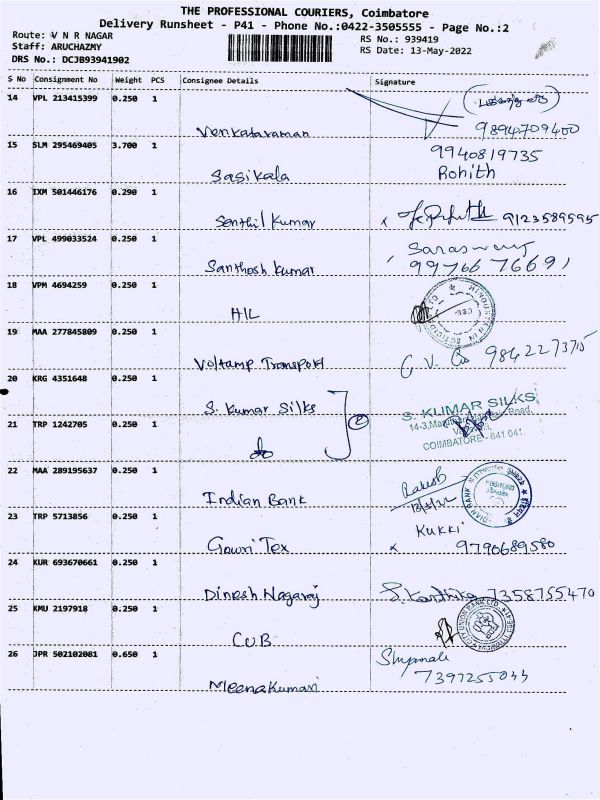 THE PROFESSIONAL COURIERS, Coimbatore
Delivery Runsheet - P41 - Phone No.:0422-3505555 - Page No.:2
Route: V N R NAGAR
Staff: ARUCHAZMY
DRS No.: DCJB93941902
RS No.: 939419
RS Date: 13-May-2022
S No Consignment No Weight PCS Consignee Details Signature
14 VPL 213415399 0.250 1
Venkataraman 9894709400
15 SLM 295469405 3.700 1 9940819735
Sasikala Rohith
16 IXM 501446176 0.290 1
Senthil Kumar 9123589595
17 VPL 499033524 0.250 1
Santhosh Kumar 9976676691
18 VPM 4694259 0.250 1
HIL
19 MAA 277845809 0.250 1
Voltamp Transport
20 KRG 4351648 0.250 1
S. Kumar Silks
S. KUMAR SILKS
21 TRP 1242705 0.250 1 2
COIMBATORE - 641 041.
22 MAA 289195637 0.250 1
Indian Bank Rakesh
23 TRP 5713856 0.250 1 Kukki
Gowri Tex 9790689580
24 KUR 693670661 0.250 1
Dinesh Nagaraj S. Karthika 7358755470
25 KMU 2197918 0.250 1
CUB
26 JPR 502102081 0.650 1
Meenakumari